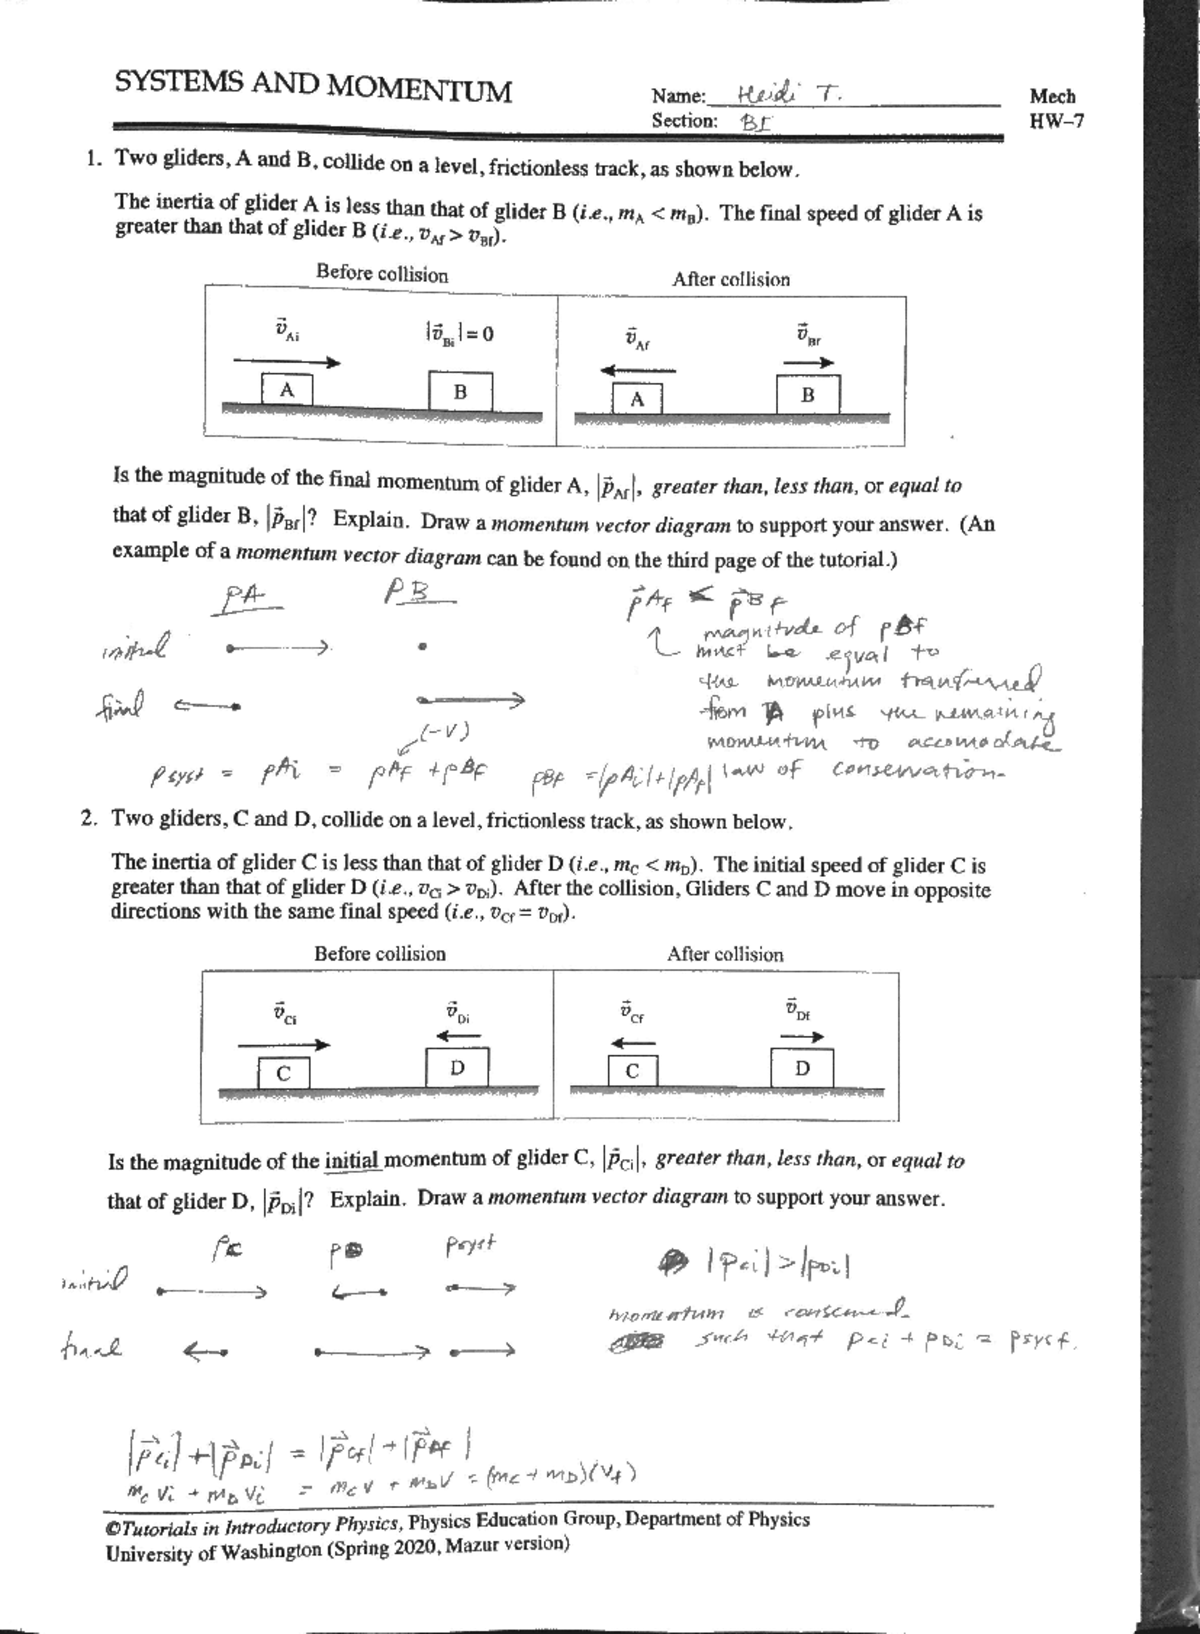 SYSTEMS AND MOMENTUM
Name: Heidi T.
Mech
Section: BI
HW–7
1. Two gliders, A and B, collide on a level, frictionless track, as shown below.
The inertia of glider A is less than that of glider B (i.e., mA < mB). The final speed of glider A is
greater than that of glider B (i.e., vAf > vBf).
Before collision
After collision
v⃗Ai
|v⃗Bi| = 0
v⃗Af
v⃗Bf
A
B
A
B
Is the magnitude of the final momentum of glider A, |p⃗Af|, greater than, less than, or equal to
that of glider B, |p⃗Bf|? Explain. Draw a momentum vector diagram to support your answer. (An
example of a momentum vector diagram can be found on the third page of the tutorial.)
pA
pB
p⃗Af < p⃗Bf
initial
magnitude of pBf
must be equal to
the momentum transferred
final
from A plus the remaining
(-v)
momentum to accomodate
psyst = pAi = pAf + pBf
pBf = |pAi| + |pAf|
law of conservation.
2. Two gliders, C and D, collide on a level, frictionless track, as shown below.
The inertia of glider C is less than that of glider D (i.e., mC < mD). The initial speed of glider C is
greater than that of glider D (i.e., vCi > vDi). After the collision, Gliders C and D move in opposite
directions with the same final speed (i.e., vCf = vDf).
Before collision
After collision
v⃗Ci
v⃗Di
v⃗Cf
v⃗Df
C
D
C
D
Is the magnitude of the initial momentum of glider C, |p⃗Ci|, greater than, less than, or equal to
that of glider D, |p⃗Di|? Explain. Draw a momentum vector diagram to support your answer.
pC
psyst
|pci| > |pDi|
initial
momentum is conserved
final
such that pci + pDi = psyst.
|p⃗ci| + |p⃗Di| = |p⃗cf| + |p⃗Df|
mc vi + mD vi = mc v + mD v = (mc + mD)(vf)
©Tutorials in Introductory Physics, Physics Education Group, Department of Physics
University of Washington (Spring 2020, Mazur version)